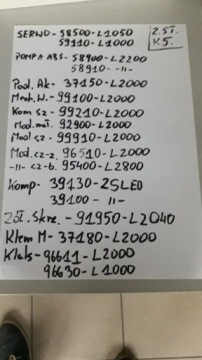 SERWO - 58500-L1050
59110-L1000
2.5T.
K5.
POMPA ABS - 58900-L2200
58910 - -||-
Pod. Ak. - 37150-L2000
99100-L2000
Kom sz - 99210-L2000
92900-L2000
Mod sz - 99910-L2000
Mod. cz-z. 96510-L2000
-||- cz-b. 95400-L2800
Komp - 39130-2SLE0
39100 - ||-
Skrz. - 91950-L2040
Klem M - 37180-L2000
Klaks - 96611-L2000
96630-L1000